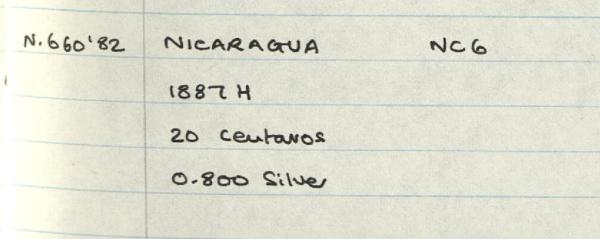 N.660'82 NICARAGUA NC6
1887 H
20 Centavos
0.800 Silver